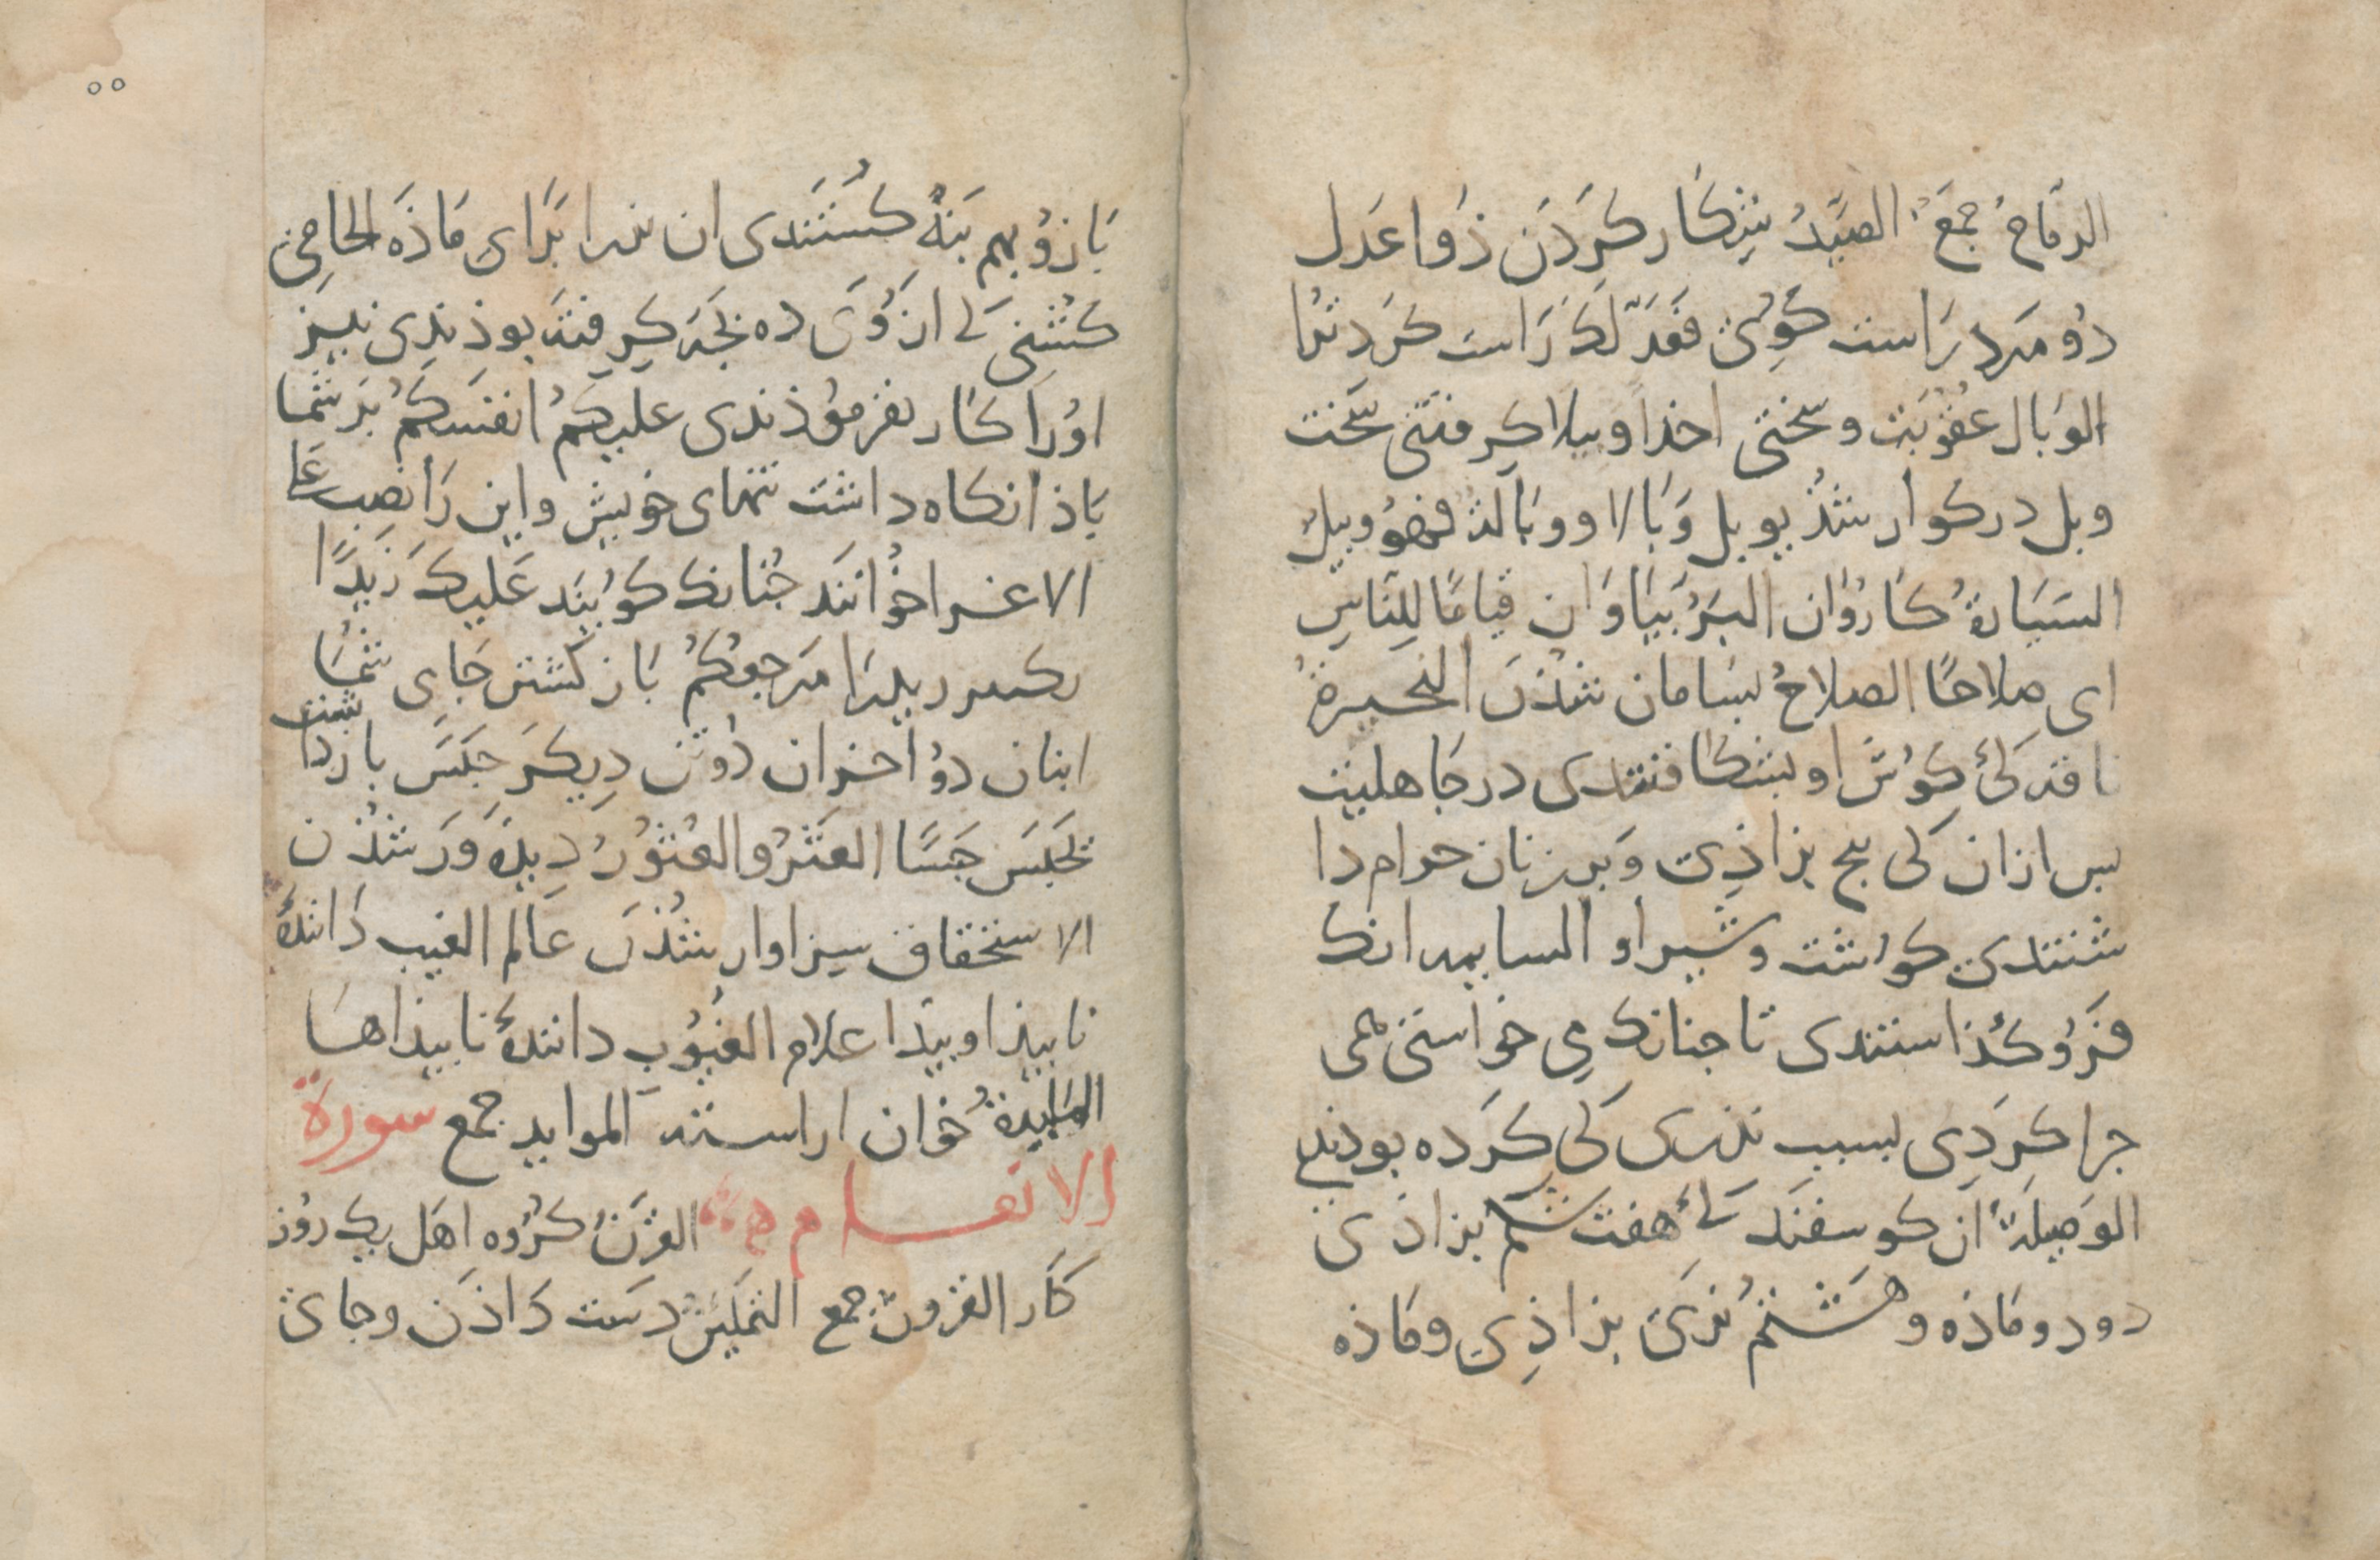 الرّماحُ جمعُ الصَّیدُ شِکار کَردَن ذَوا عَدل
دُو مَرد رَاست کُوی فَعَدَلَکَ رَاست کَرد ترا
الوَبال عقُوبَت و سختی اخذا وبیلا کرفتنی سَخت
وبل درکوار شُذ یوبل وَبَالا ووبَالة فهوُ وبیل
السَیَارةُ کارُوان البَرُّ بیَاوَان قیامًا لِلنّاسِ
ای صلاحًا الصلاحُ بسَامان شُذن البحیرةُ
ناقه کئ کوُش او بشکافتندی در جاهلیت
بس ازان کی بنج بزاذی وَ بر زنان حرام دا
شتندی کوشت و شیر او السایبه انک
فَرُو کُذاستندی تا جنانک می خواستی همی
جرا کردِی بسبب نذری کی کَرده بودندی
الوَصِیلَة ان کوسفند کئ هفت شکم بزاذی
دو دو مَاذه و هَشتُم نری بزاذِی و مَاذه
بَازُو بهم بَنه کُشتَندی ان نررا بَرای مَاذَه الحامِی
کُشنی کی از وَی ده بَجَه کِرِفته بوذندِی نیز
اوُرا کار نفرموُذندی علیکمُ انفسَکمُ بَر شُمَا
بَاذا نکاه داشت تنهای خویش و این رَا نصب عَلی
الاغرا خوُانَند جُنانک کوُیَند عَلیک زَیدًا
بکیر زیدرا مَرجعُکُمُ بَاز کشتن جَای شُمَا
اثنان دوُ اخران دُوتن دِیکَر حبَسَ بازداشت
یَحبَسَ حَبسًا العَثرُ والعُثوُرُ دِیذَه وَر شُذن
الاستحقاق سزاوار شُذن عَالم الغیب دَانندۀ
نابیذا و بیذا علام الغیُوُب دانندۀ نابیذاهَا
المَایِدةُ خوَان اراسته الموایدُ جمع سورة
الانعام القَرنُ کرُوه اهَل یک رُوز
کَار القرون جمع التمَکینُ دست دَاذَن و جای